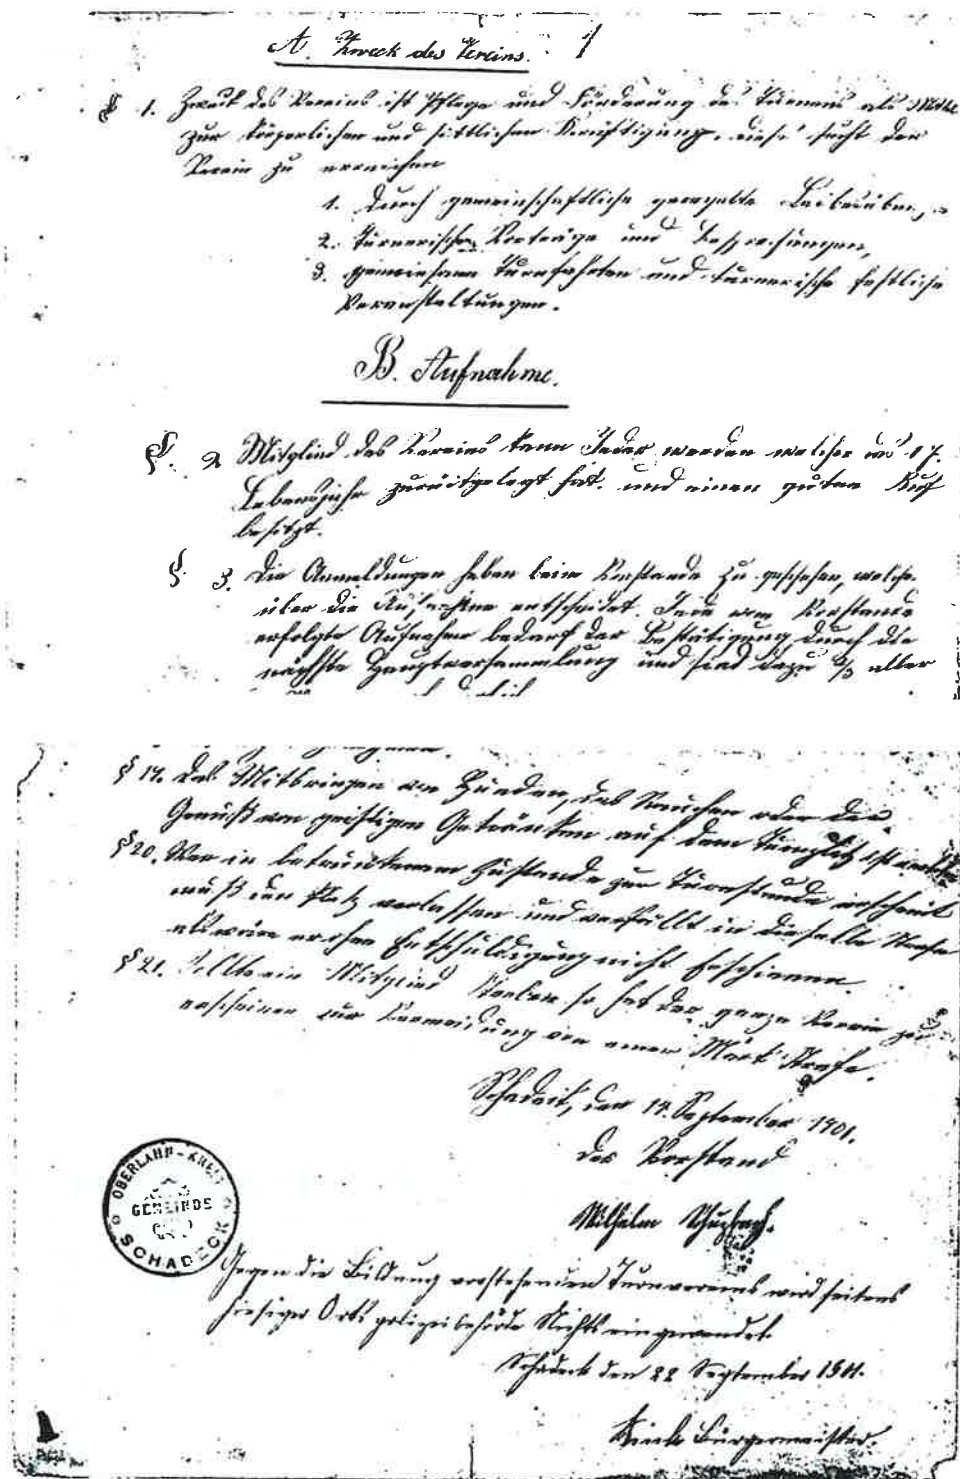 A. Zweck des Vereins.
§ 1. Zweck des Vereins ist Pflege und Förderung des Turnens als Mittel
zur körperlichen und sittlichen Kräftigung, diese sucht der
Verein zu erreichen
1. durch gemeinschaftliche geregelte Leibesüben,
2. turnerische Vorträge und Besprechungen,
3. gemeinsame Turnfahrten und turnerische festliche
Veranstaltungen.
B. Aufnahme.
§. 2 Mitglied des Vereins kann Jeder werden welcher das 17.
Lebensjahr zurückgelegt hat. und einen guten Ruf
besitzt.
§. 3. Die Anmeldungen haben beim Vorstande zu geschehen, welcher
über die Aufnahme entscheidet. Jede vom Vorstande
erfolgte Aufnahme bedarf der Bestätigung durch die
nächste Hauptversammlung und sind dazu 2/3 aller
§ 19. Das Mitbringen von Hunden, das Rauchen oder der
Genuß von geistigen Getränken auf dem Turnplatz ist verboten
§ 20. Wer in betrunkenem Zustande zur Turnstunde erscheint
muß den Platz verlassen und verfällt in dieselbe Strafe
als wäre er ohne Entschuldigung nicht erschienen.
§ 21. Sollte ein Mitglied sterben so hat der ganze Verein zu
erscheinen zur Vermeidung von einer Mark Strafe.
Schadeck, den 14. September 1901.
Der Vorstand
Wilhelm
OBERLAHN-KREIS
GEMEINDE
SCHADECK
Gegen die Bildung vorstehenden Turnvereins wird seitens
hiesiger Ortspolizeibehörde Nichts eingewendet.
Schadeck den 22 September 1901.
Bürgermeister.